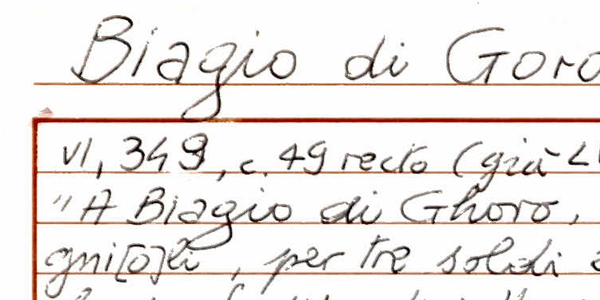 Biagio di Goro
VI, 349, c. 49 recto (già
"A Biagio di Ghoro,
gni[o]li, per tre soldi